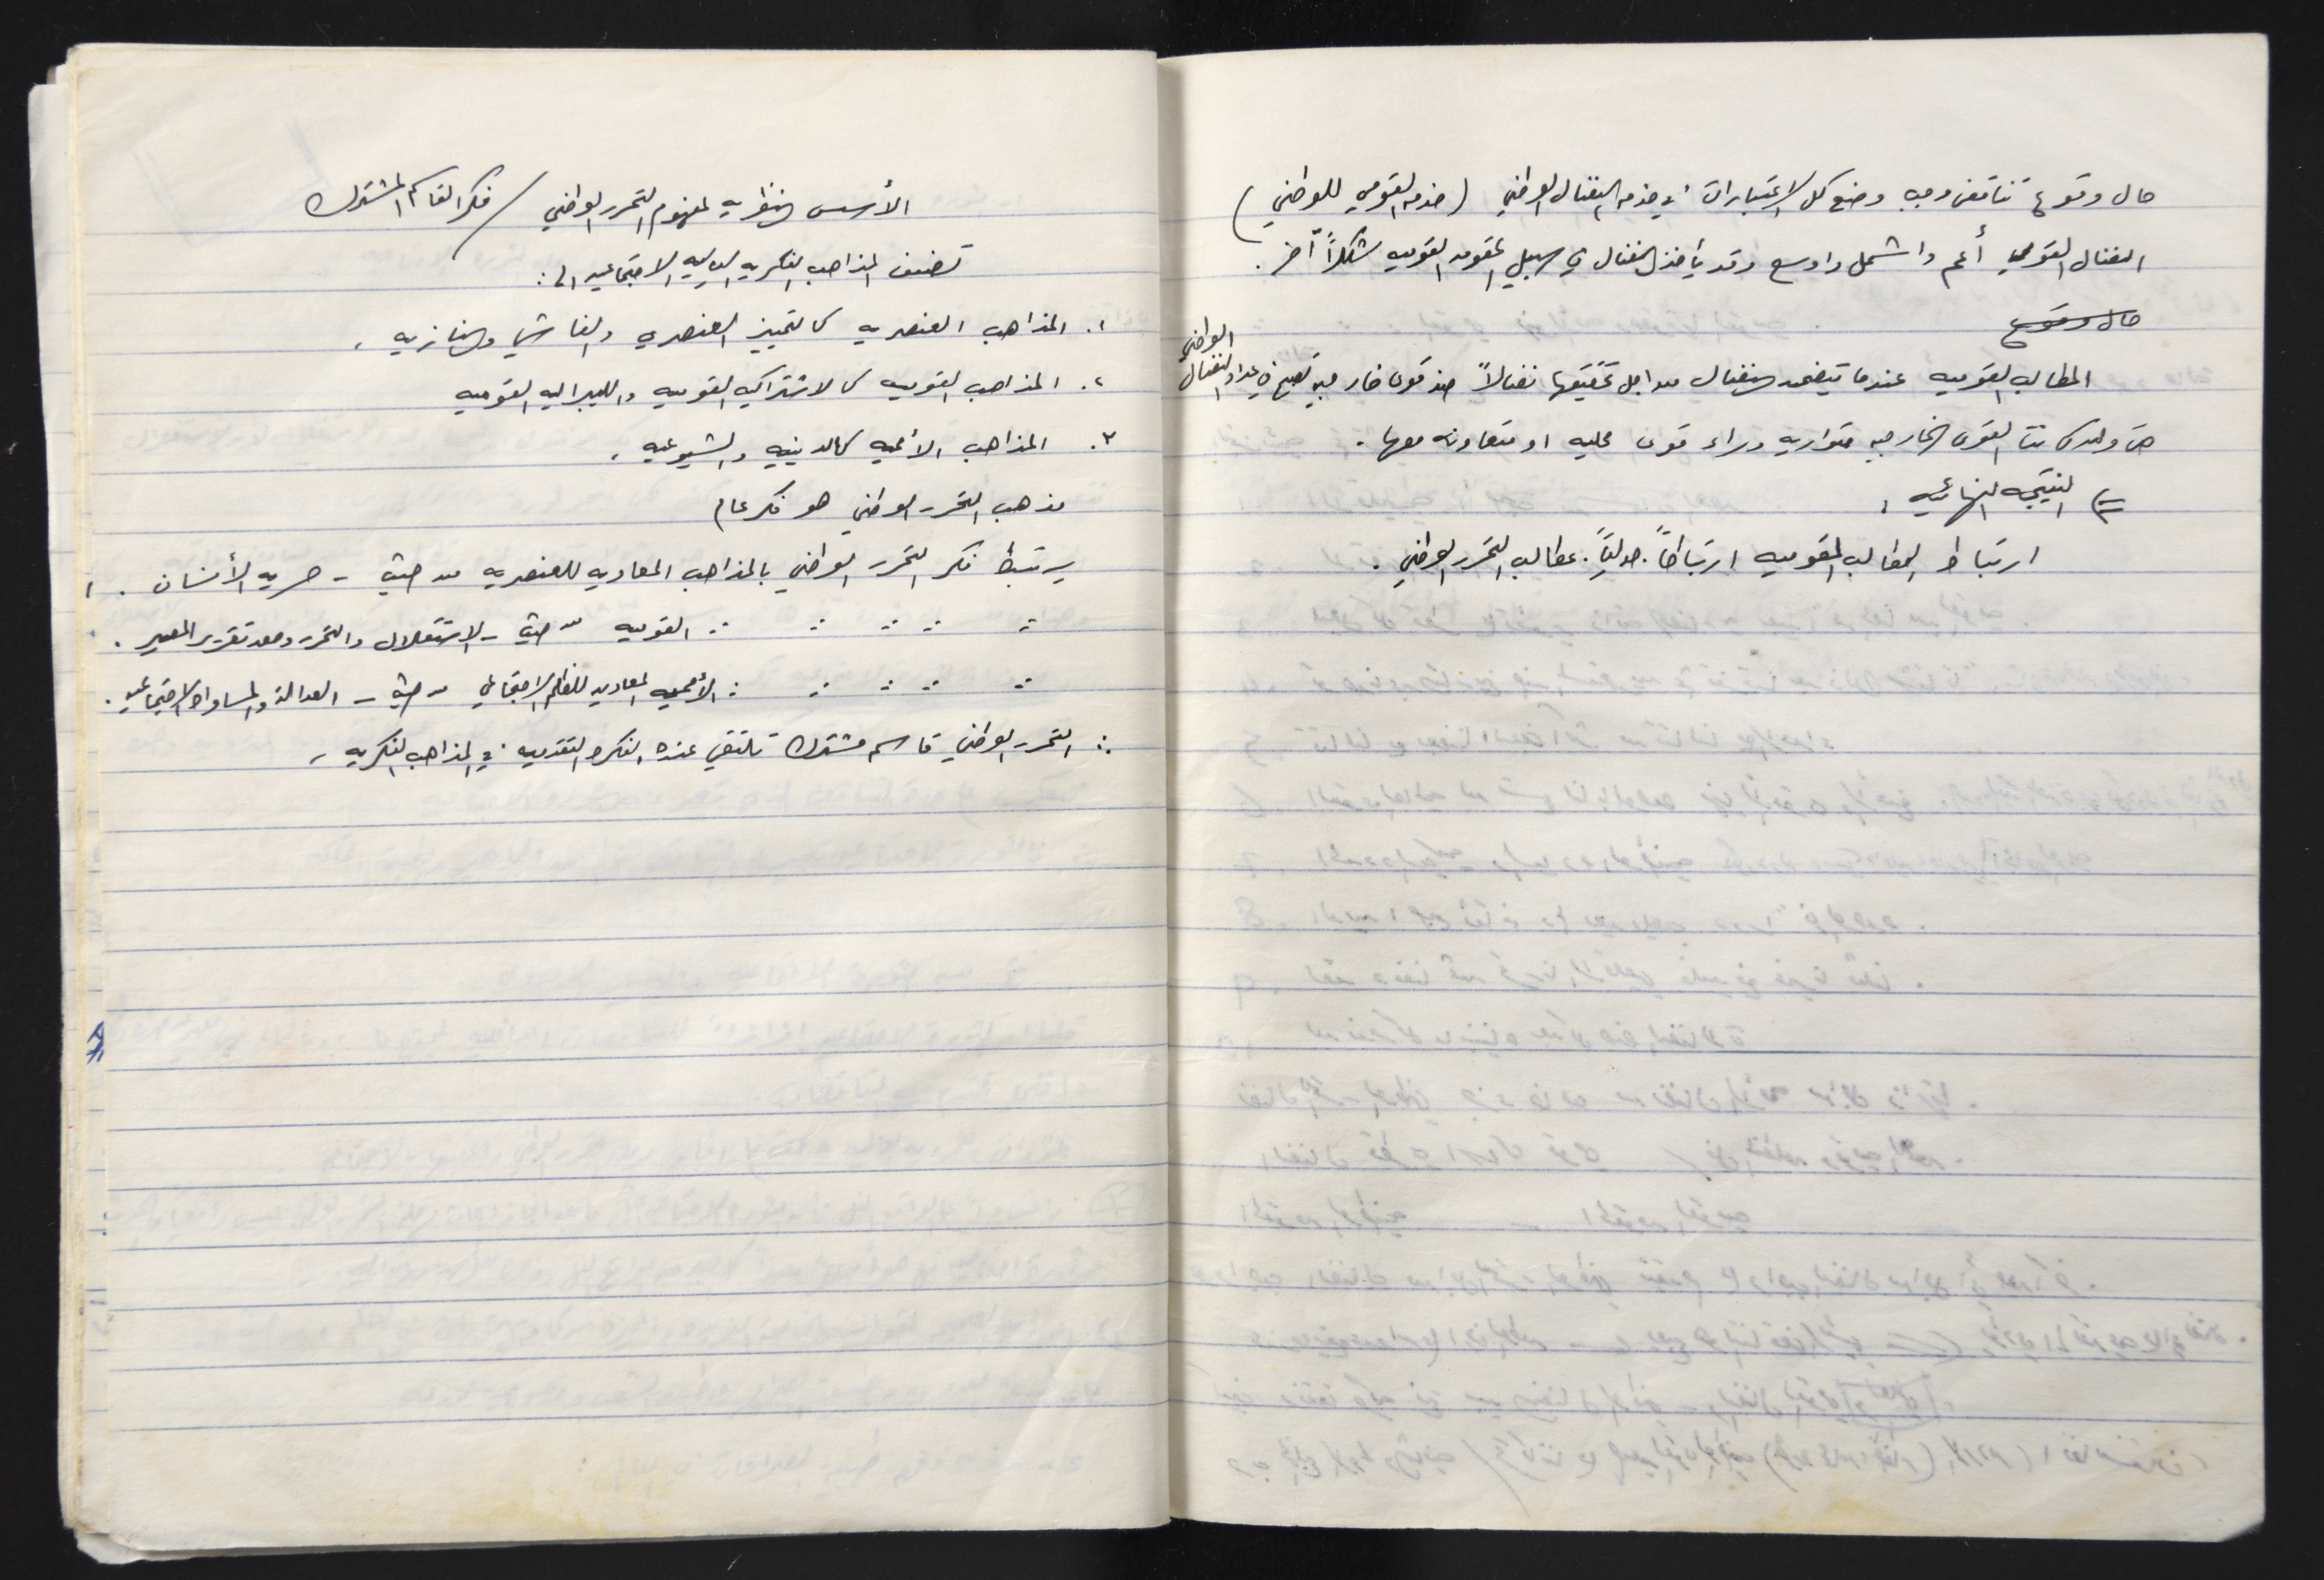 حال وقوع تناقض وجب وضع كل الاعتبارات في خدمة النضال الوطني (خدمة القومي للوطني)
النضال القومي أعم واشمل واوسع وقد يأخذ النضال في سبيل الحقوق القوميه شكلاً آخر.
حال وقوع
المطالب القوميه عندما يتضمن النضال من اجل تحقيقها نضالاً ضد قوى خارجيه تصبح في عداد النضال الوطني
حتى ولو كانت القوى الخارجيه متواريه وراء قوى محليه او متعاونه معها.
النتيجه النهائيه:
ارتباط المطالب القوميه ارتباطاً جدلياً بمطالب التحرر الوطني.
الأسس النظريه لمفهوم التحرر الوطني / فكر القاسم المشترك
تصنف المذاهب الفكريه السياسيه الاجتماعيه الى:
١. المذاهب العنصريه كالتمييز العنصري والفاشيه والنازيه.
٢. المذاهب القوميه كالاشتراكيه القوميه والليبراليه القوميه
٣. المذاهب الأمميه كالدينيه والشيوعيه.
مذهب التحرر الوطني هو فكر عام
يرتبط فكر التحرر الوطني بالمذاهب المعاديه للعنصريه من حيث - حريه الأنسان.
" " " " " القوميه من حيث - الاستقلال والتحرر وحق تقرير المصير.
" " " " " الأمميه المعاديه للظلم الاجتماعي من حيث - العدالة والمساواة الاجتماعيه.
∴ التحرر الوطني قاسم مشترك تلتقي عنده الفكر التقدميه في المذاهب الفكريه.